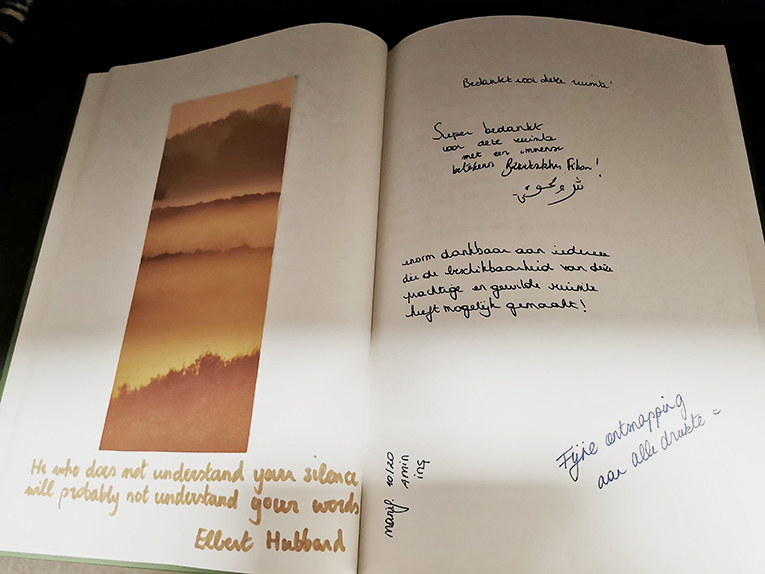 He who does not understand your silence
will probably not understand your words
Elbert Hubbard
Bedankt voor deze ruimte!
Super bedankt
voor deze ruimte
met een immense
betekenis !
enorm dankbaar aan iedereen
die de beschikbaarheid van deze
prachtige en gewilde ruimte
heeft mogelijk gemaakt!
Fijne ontsnapping
aan alle drukte
10/20